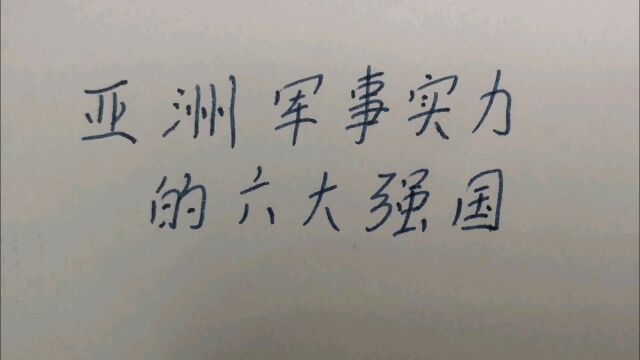 亚洲军事实力
的六大强国